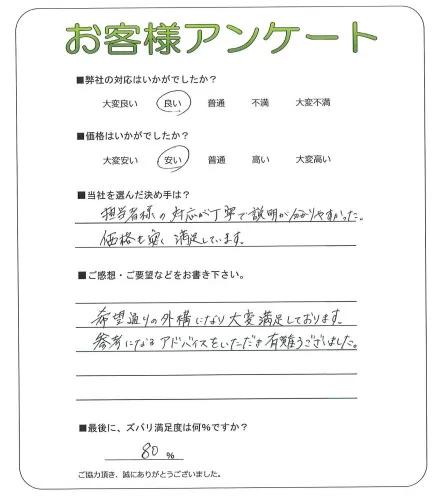 お客様アンケート
■弊社の対応はいかがでしたか?
大変良い 良い 普通 不満 大変不満
■価格はいかがでしたか?
大変安い 安い 普通 高い 大変高い
■当社を選んだ決め手は?
担当者様の対応が丁寧で説明が分かりやすかった。
価格も安く満足しています。
■ご感想・ご要望などをお書き下さい。
希望通りの外構になり大変満足しております。
参考になるアドバイスをいただき有難うございました。
■最後に、ズバリ満足度は何%ですか?
80 %
ご協力頂き、誠にありがとうございました。